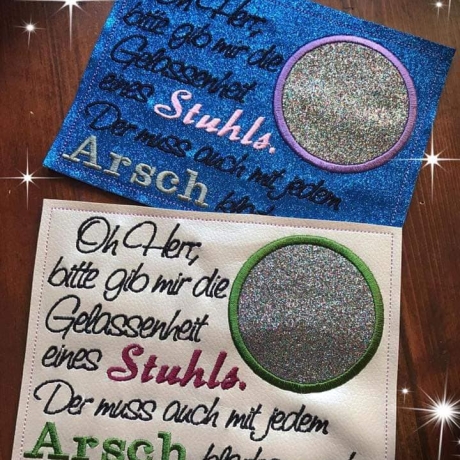 Oh Herr,
bitte gib mir die
Gelassenheit
eines Stuhls.
Der muss auch mit jedem
Arsch
Oh Herr,
bitte gib mir die
Gelassenheit
eines Stuhls.
Der muss auch mit jedem
Arsch